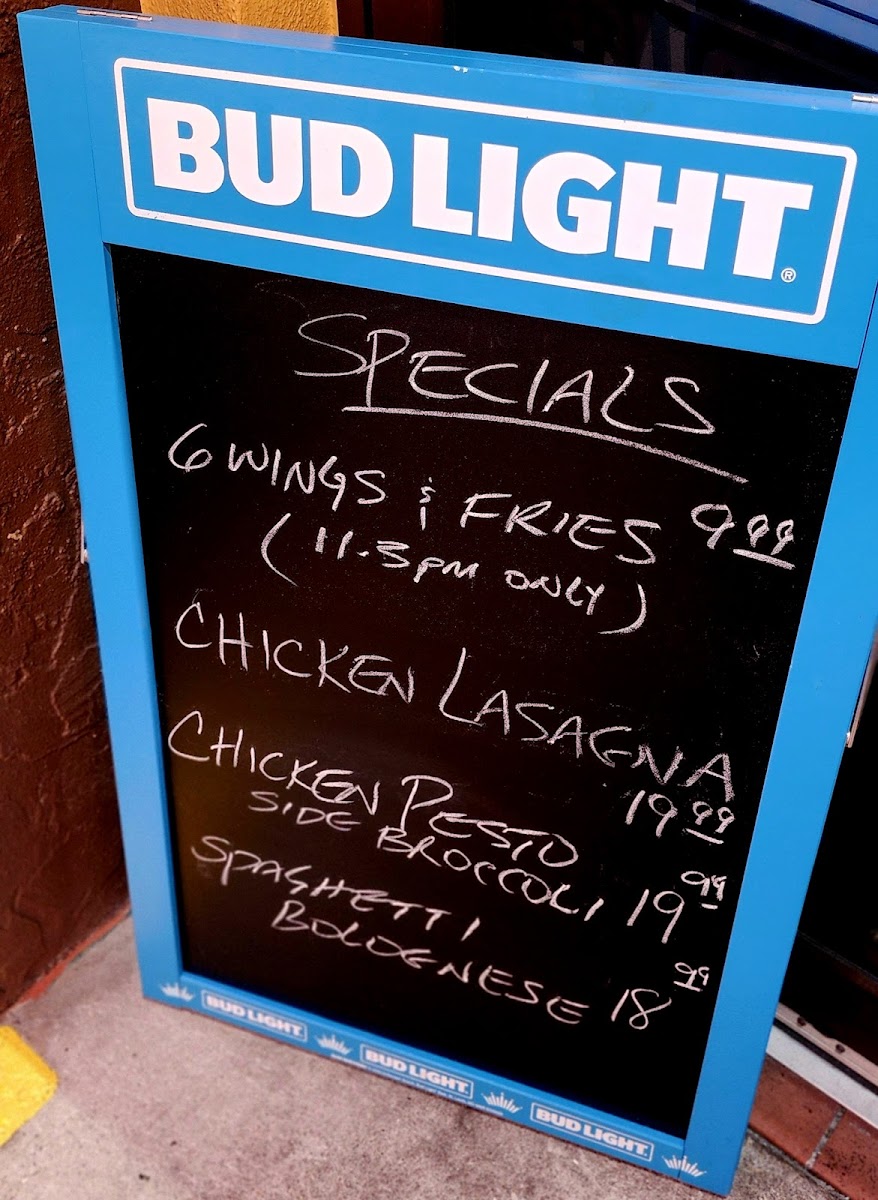 BUD LIGHT®
SPECIALS
6 WINGS & FRIES 9.99
(11-3PM ONLY)
CHICKEN LASAGNA
19 99
CHICKEN PESTO
SIDE BROCCOLI 19 99
SPAGHETTI
BOLOGNESE 18 99
BUD LIGHT BUD LIGHT BUD LIGHT